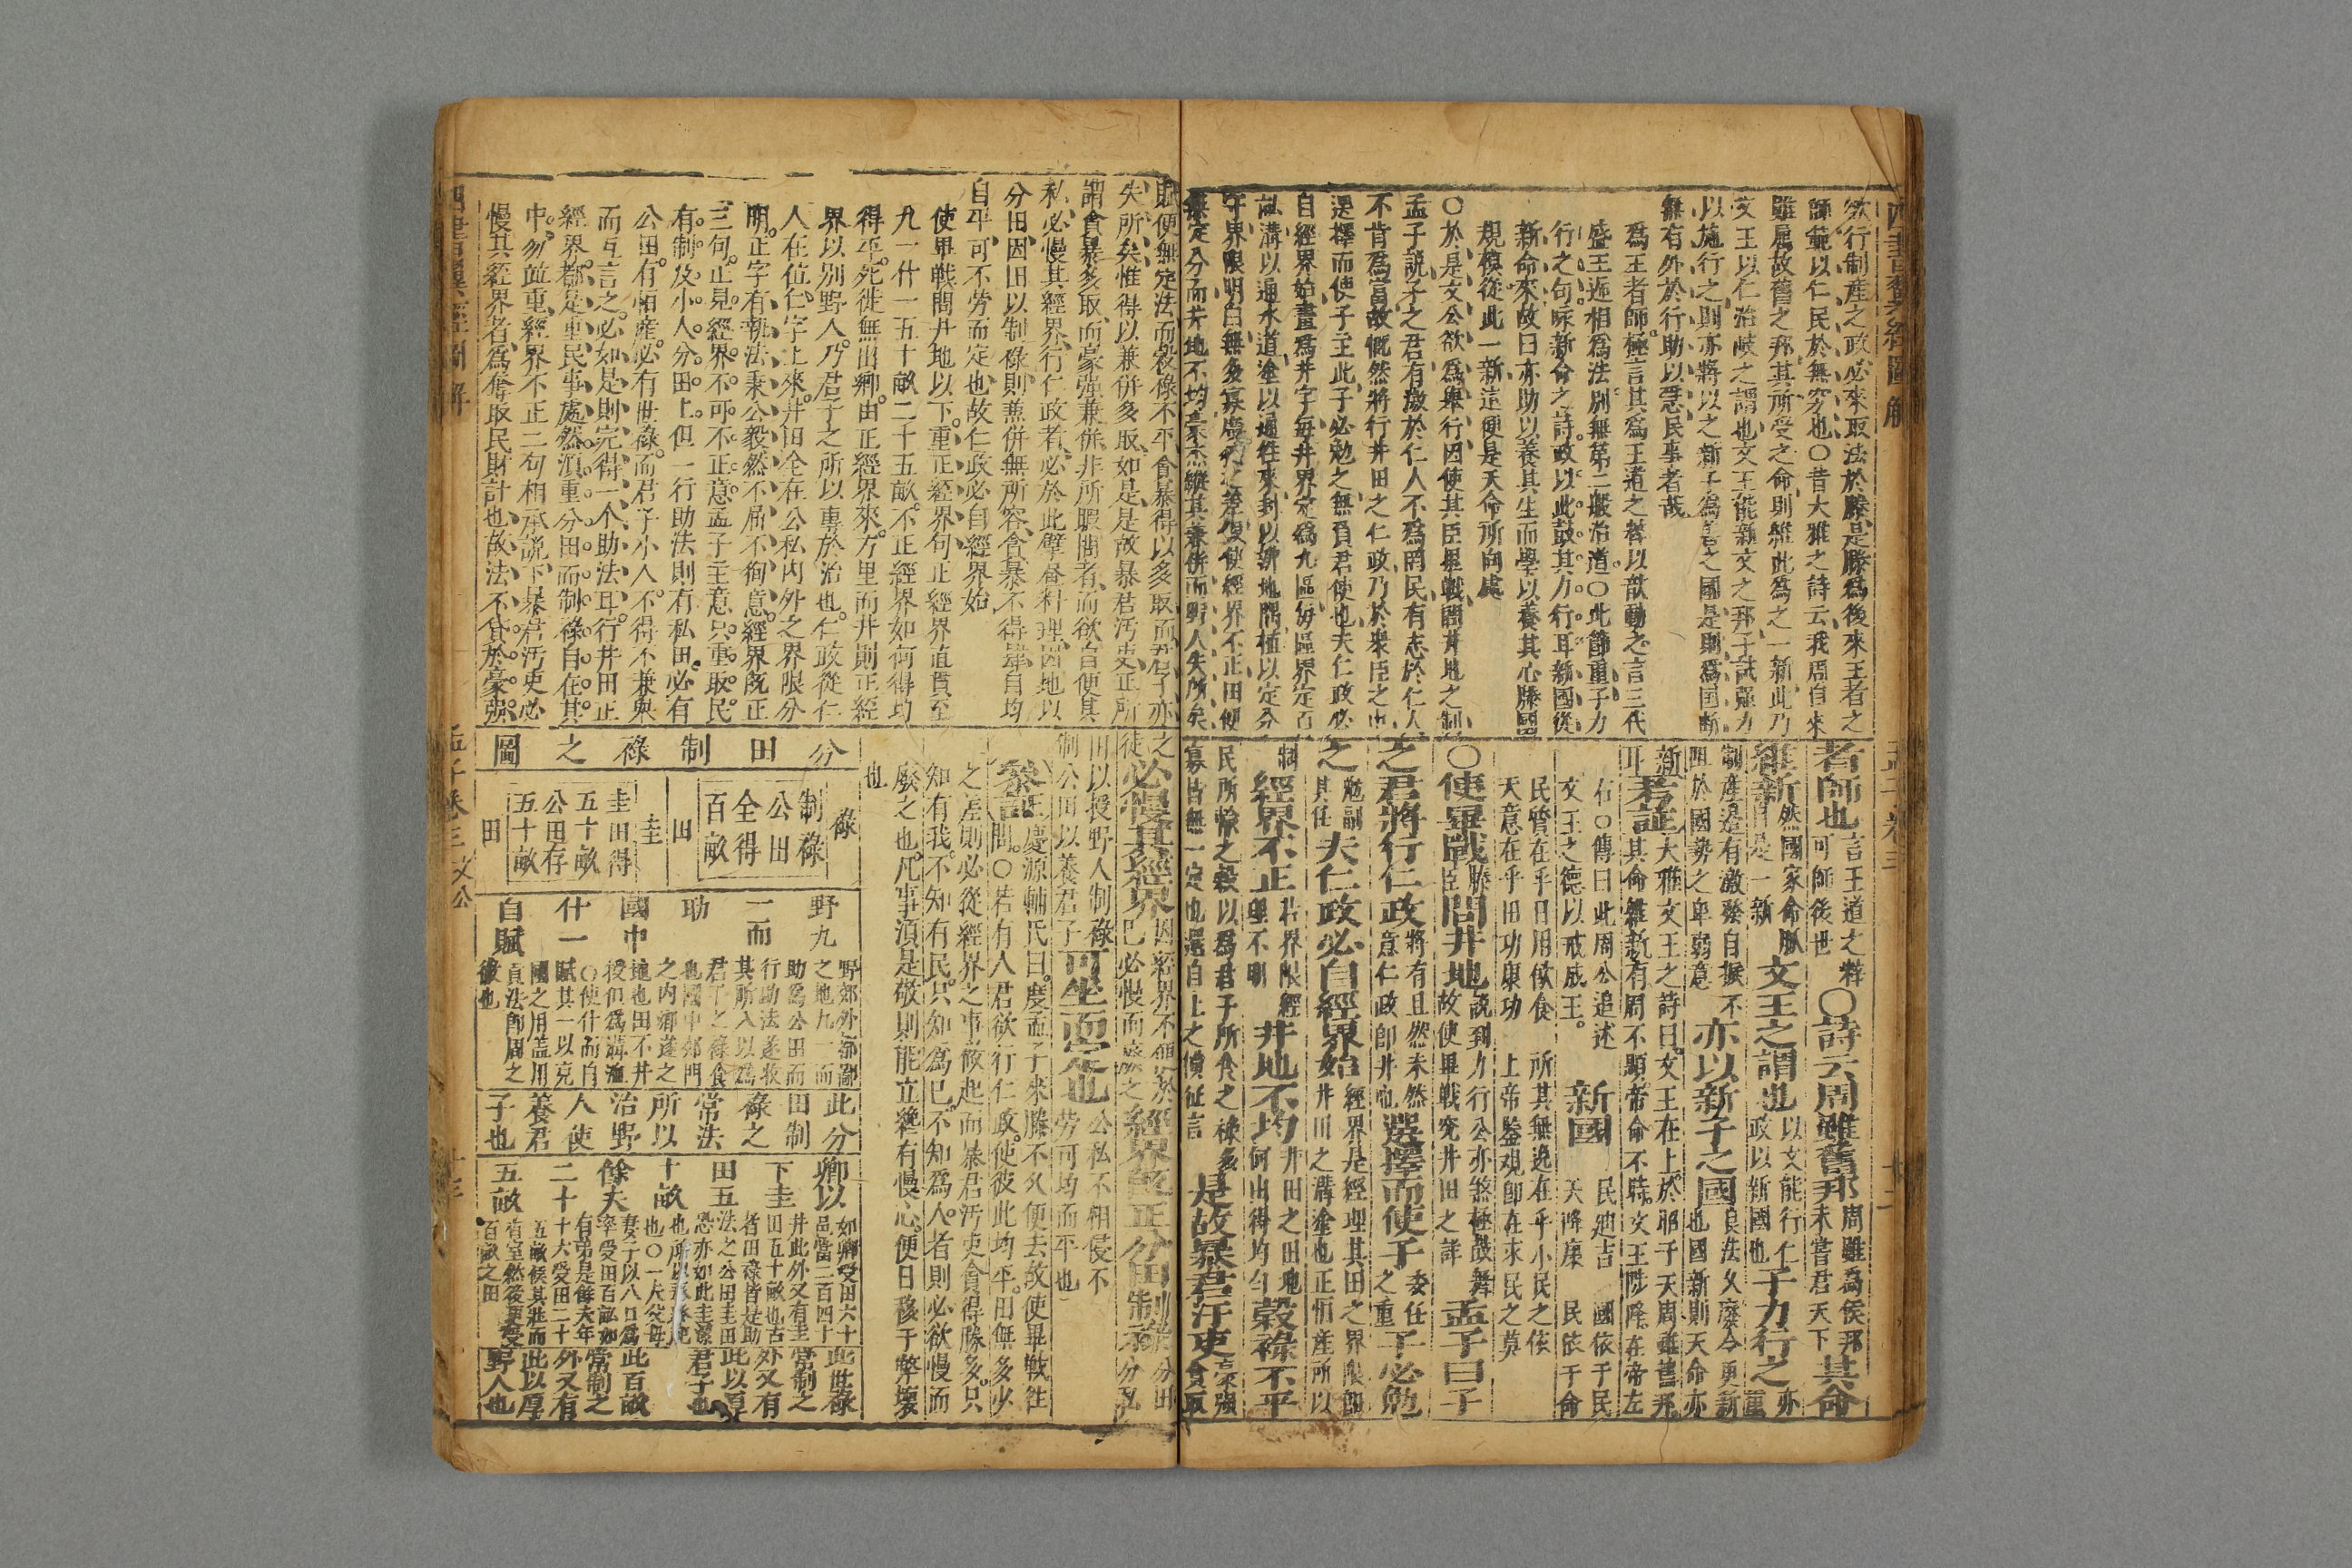 四書補經圖解
欲行制產之政必來取法於滕是滕爲後來王者之
師範以仁民於無窮也○昔大雅之詩云我周自來
雖屬故舊之邦其所受之命則維此爲之一新此乃
文王以仁治岐之謂也文王能新文之邦子試強力
以施行之則亦將以之新子爲善之國是則爲国斷
無有外於行助以急民事者哉
爲王者師極言其爲王道之粹以歆動之言三代
盛王迹相爲法別無第二般治道○此節重子力
行之句咏新命之詩政以此鼓其力行耳新國從
新命來故曰亦助以養其生而學以養其心滕國
規模從此一新這便是天命所向處
○於是文公欲爲舉行因使其臣畢戰問井地之制
孟子說子之君有激於仁人不爲罔民有志於仁人
不肯爲富故慨然將行井田之仁政乃於衆臣之中
選擇而使子主此子必勉之無負君使也夫仁政必
自經界始畫爲井字每井界定爲九區每區界定百
畝溝以通水道塗以通往來封以辨地隅植以定分
守界限明白無多寡廣狹之差假使經界不正田便
無定分而井地不均豪杰縱其兼併而野人失所矣
者師也言王道之粹可師後世○詩云周雖舊邦周雖爲侯邦未嘗君天下其命
維新然國家命脈則是一新文王之謂也以文能行仁政以新國也子力行之亦重
制產邊有激發自振不阻於國勢之卑弱意亦以新子之國良法久廢今更新也國新則天命亦
新耳考証大雅文王之詩曰文王在上於昭于天周雖舊邦其命維新有周不顯帝命不時文王陟降在帝左
右○傳曰此周公追述文王之德以戒成王新國民迪吉天降康國依于民民依于命
民質在乎日用飲食天意在乎田功康功所其無逸在乎小民之依上帝鑒觀卽在求民之莫
○使畢戰滕臣問井地說到力行公亦煞極鼓舞故使畢戰究井田之詳孟子曰子
之君將行仁政將有且然未然意仁政卽井也選擇而使子委任之重子必勉
之勉副其任夫仁政必自經界始經界是經理其田之界限卽井川之溝塗也正恒產所以
制經界不正君界限經理不明井地不均井田之田地何由得均勻穀祿不平
民所輸之穀以爲君子所食之祿多寡皆無一定也還自上之慎征言是故暴君汙吏豪強貪取
賦便無定法而穀祿不平貪暴得以多取而君子亦
失所矣惟得以兼併多取如是是故暴君汚吏正所
謂貪暴多取而豪強兼併非所暇問者而欲自便其
私必慢其經界行仁政者必於此擘晝料理因地以
分田因田以制祿則兼併無所容貪暴不得肆自均
自平可不勞而定也故仁政必自經界始
使畢戰問井地以下重正經界句正經界直貫至
九一什一五十畝二十五畝不正經界如何得均
得平死徙無出鄉由正經界來方里而井則正經
界以別野人乃君子之所以專於治也仁政從仁
人在位仁字上來井田全在公私内外之界限分
明正字有執法秉公毅然不屈不徇意經界旣正
三句正見經界不可不正意孟子主意只重取民
有制及小人分田上但一行助法則有私田必有
公田有恒産必有世祿而君子小人不得不兼舉
而互言之必如是則完得一个助法耳行井田正
經界都是重民事處然須重分田而制祿自在其
中勿並重經界不正二句相承說下暴君汚吏必
慢其經界者爲奪取民財計也故法不貸於豪強
之徒必慢其經界因經界不便於己必慢而廢之經界旣正分田制祿分田
田以授野人制祿制公田以養君子可坐而定也公私不相侵不勞可均而平也
参訂王慶源輔氏曰度孟子來滕不久便去故使畢戰往
問○若有人君欲行仁政使彼此均平田無多少
之差則必從經界之事做起而暴君汚吏貪得祿多只
知有我不知有民只知爲己不知爲人者則必欲慢而
廢之也凡事須是敬則能立纔有慢心便日移于弊壞
也
分田制祿之圖
祿
制祿公田全得百畝
圭田
圭田得五十畝公田存五十畝
野九一而助國中什一自賦
野郊外都鄙之地九一而助爲公田而行助法遂收其所入以爲君子之祿食也國中郊門之內鄉遂之地也田不井授但爲溝洫○使什而自賦其一以充國之用盖用貢法卽周之徹也
此分田制祿之常法所以治野人使養君子也
卿以下圭田五十畝餘夫二十五畝
此世祿常制之外又有此以厚君子也
此百畝常制之外又有此以厚野人也
四書補經圖解
孟子卷三 文公